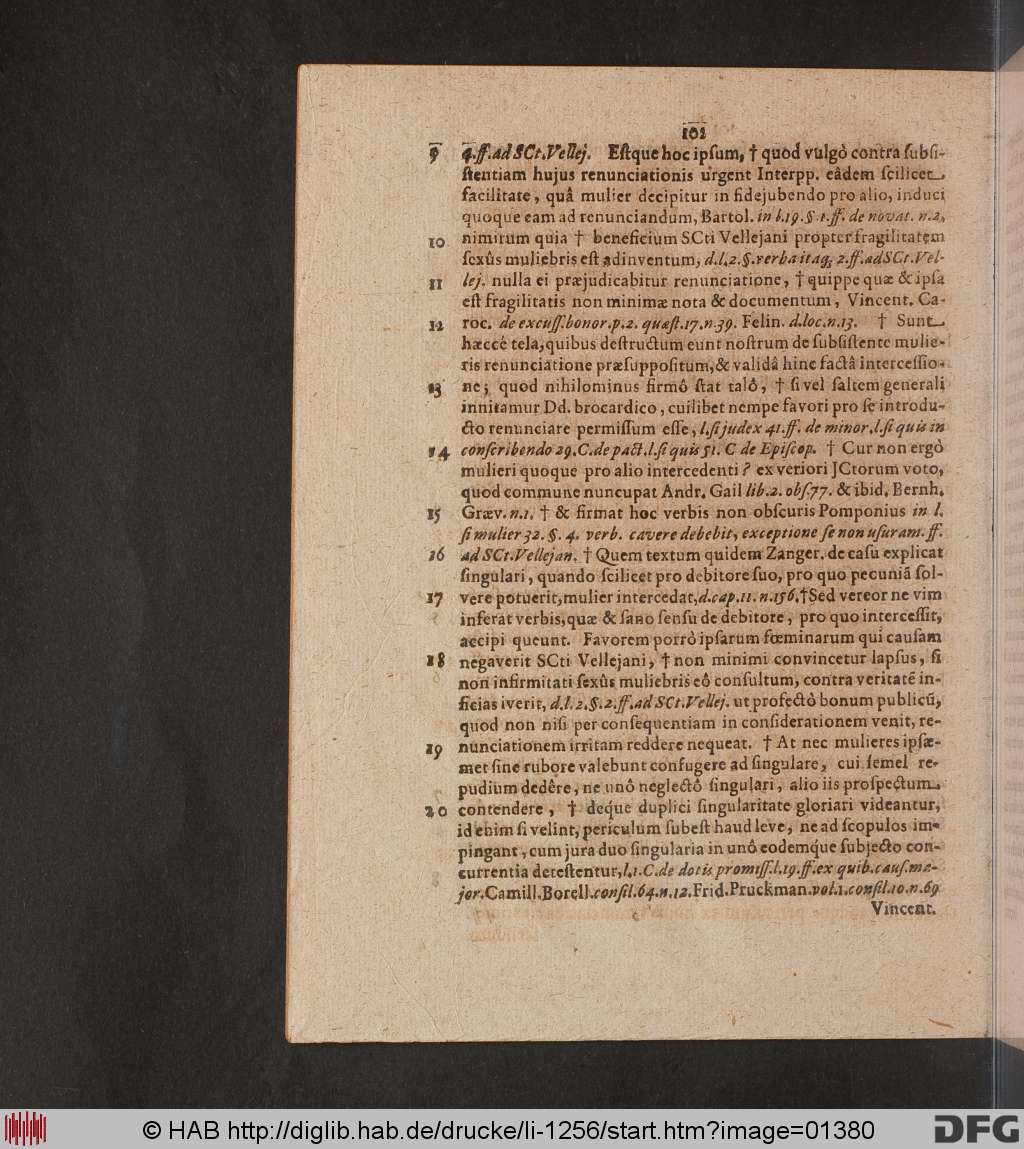 102
9 4.ff.ad SCt.Vellej. Eſtque hoc ipſum, † quod vulgò contra ſubſi-
ſtentiam hujus renunciationis urgent Interpp. eâdem ſcilicet
facilitate, quâ mulier decipitur in fidejubendo pro alio, induci
quoque eam ad renunciandum, Bartol. in l.19.§.1.ff. de novat. n.2,
10 nimirum quia † beneficium SCti Vellejani propter fragilitatem
ſexûs muliebris eſt adinventum, d.l.2.§.verba itaq; 2.ff.ad SCt.Vel-
11 lej. nulla ei præjudicabitur renunciatione, † quippe quæ & ipſa
eſt fragilitatis non minimæ nota & documentum, Vincent. Ca-
12 roc. de excuſſ.bonor.p.2. quæſt.17.n.39. Felin. d.loc.n.13. † Sunt
hæcce tela,quibus deſtructum eunt noſtrum de ſubſiſtente mulie-
ris renunciatione præſuppoſitum,& validâ hinc factâ interceſſio-
13 ne; quod nihilominus firmô ſtat talô, † ſi vel ſaltem generali
innitamur Dd. brocardico, cuilibet nempe favori pro ſe introdu-
cto renunciare permiſſum eſſe, l.ſi judex 41.ff. de minor.l.ſi quis in
14 conſcribendo 29.C.de pact.l.ſi quis 51. C de Epiſcop. † Cur non ergò
mulieri quoque pro alio intercedenti? ex veriori JCtorum voto,
quod commune nuncupat Andr. Gail lib.2. obſ.77. & ibid. Bernh.
15 Græv. n.1. † & firmat hoc verbis non obſcuris Pomponius in l.
ſi mulier 32. §. 4. verb. cavere debebit, exceptione ſe non uſuram. ff.
16 ad SCt.Vellejan. † Quem textum quidem Zanger. de caſu explicat
ſingulari, quando ſcilicet pro debitore ſuo, pro quo pecuniã ſol-
17 vere potuerit,mulier intercedat,d.cap.11.n.156.†Sed vereor ne vim
inferat verbis,quæ & ſano ſenſu de debitore, pro quo interceſſit,
accipi queunt. Favorem porrò ipſarum fœminarum qui cauſam
18 negaverit SCti Vellejani, † non minimi convincetur lapſus, ſi
non infirmitati ſexûs muliebris eô conſultum, contra veritatẽ in-
ficias iverit, d.l.2.§.2.ff.ad SCt.Vellej. ut profectò bonum publicũ,
quod non niſi per conſequentiam in conſiderationem venit, re-
19 nunciationem irritam reddere nequeat. † At nec mulieres ipſæ-
met ſine rubore valebunt confugere ad ſingulare, cui ſemel re-
pudium dedêre, ne unô neglectô ſingulari, alio iis proſpectum
20 contendere, † deq́ue duplici ſingularitate gloriari videantur,
id enim ſi velint, periculum ſubeſt haud leve, ne ad ſcopulos im-
pingant, cum jura duo ſingularia in unô eodemq́ue ſubjecto con-
currentia deteſtentur,l.1.C.de dotis promiſſ.l.19.ff.ex quib.cauſ.ma-
jor.Camill.Borell.conſil.64.n.12.Frid.Pruckman.vol.1.conſil.10.n.69
Vincent.
© HAB http://diglib.hab.de/drucke/li-1256/start.htm?image=01380
DFG